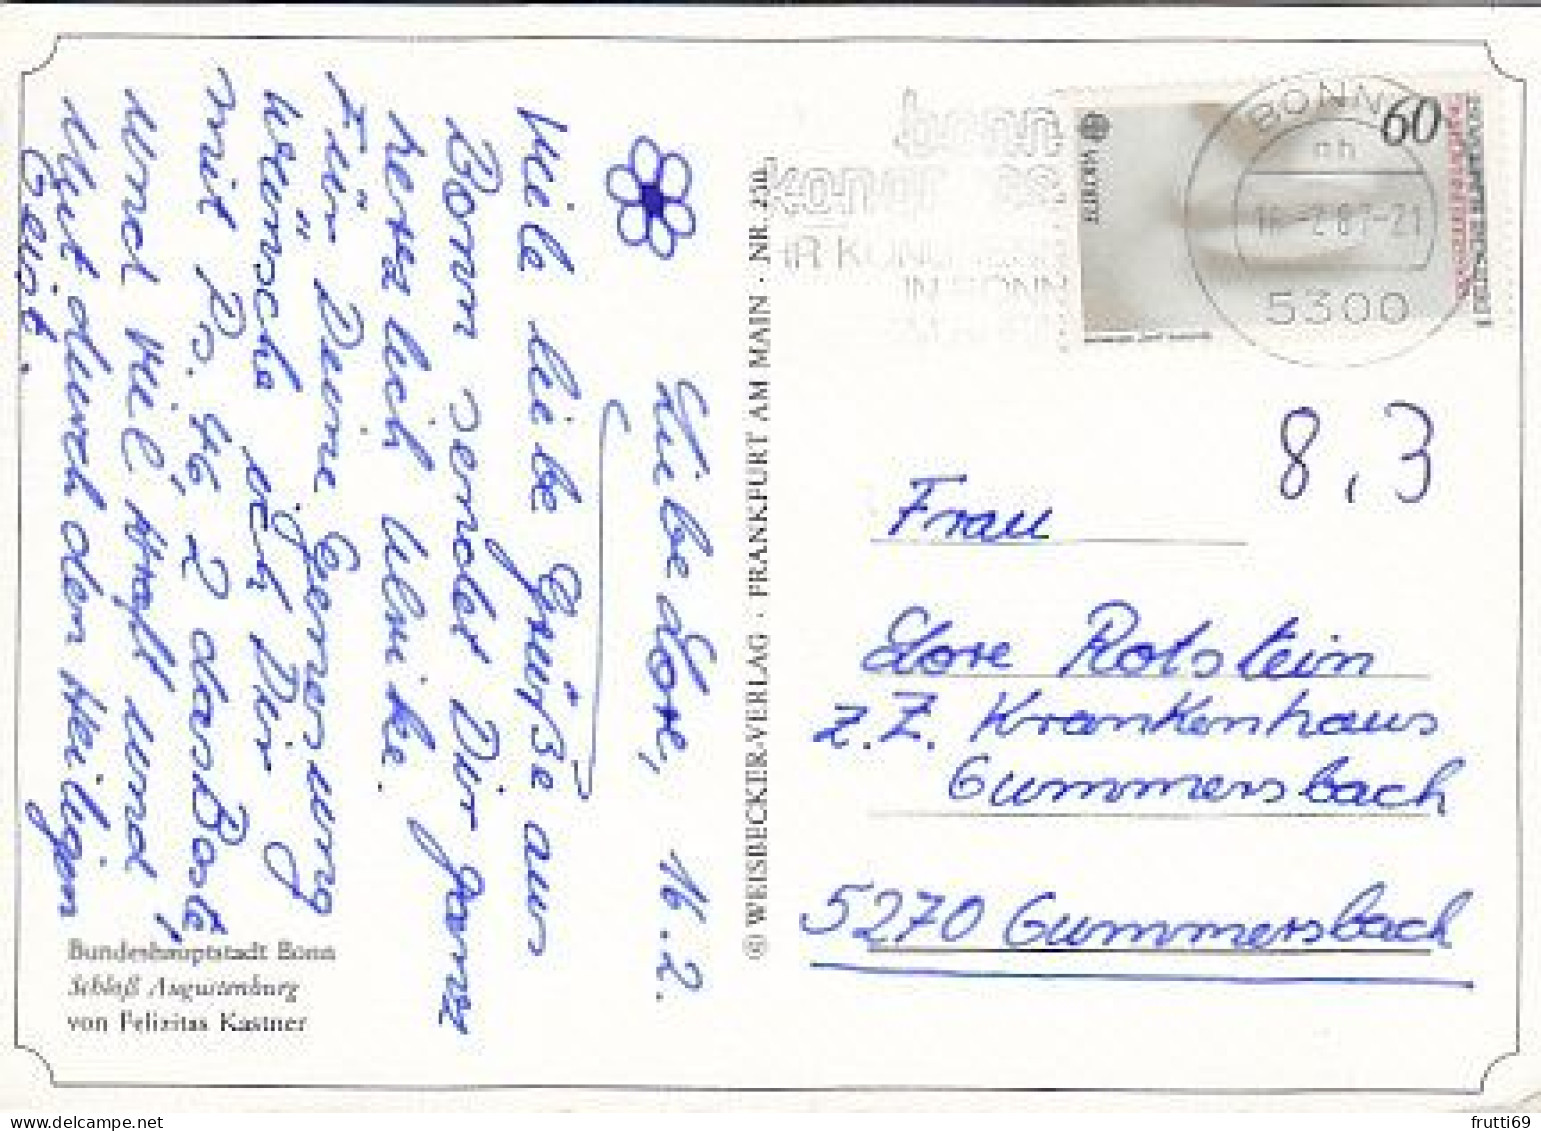 Liebe Lore, 16.2.
Viele liebe Grüße aus
Bonn sendet Dir ganz
herzlich Ulrike.
Für Deine Genesung
wünsche ich Dir
mit Ps. 46, 2 das Beste,
und viel Kraft und
Mut durch den Heiligen
Geist.
Bundeshauptstadt Bonn
Schloß Augustenburg
von Felizitas Kastner
© WEISBECKER-VERLAG · FRANKFURT AM MAIN · NR. 250
bonn
IN BONN
EUROPA
60
DEUTSCHE BUNDESPOST
BONN
nh
5300
8,3
Frau
Lore Rotstein
z.Z. Krankenhaus
Gummersbach
5270 Gummersbach
www.delcampe.net
frutti69